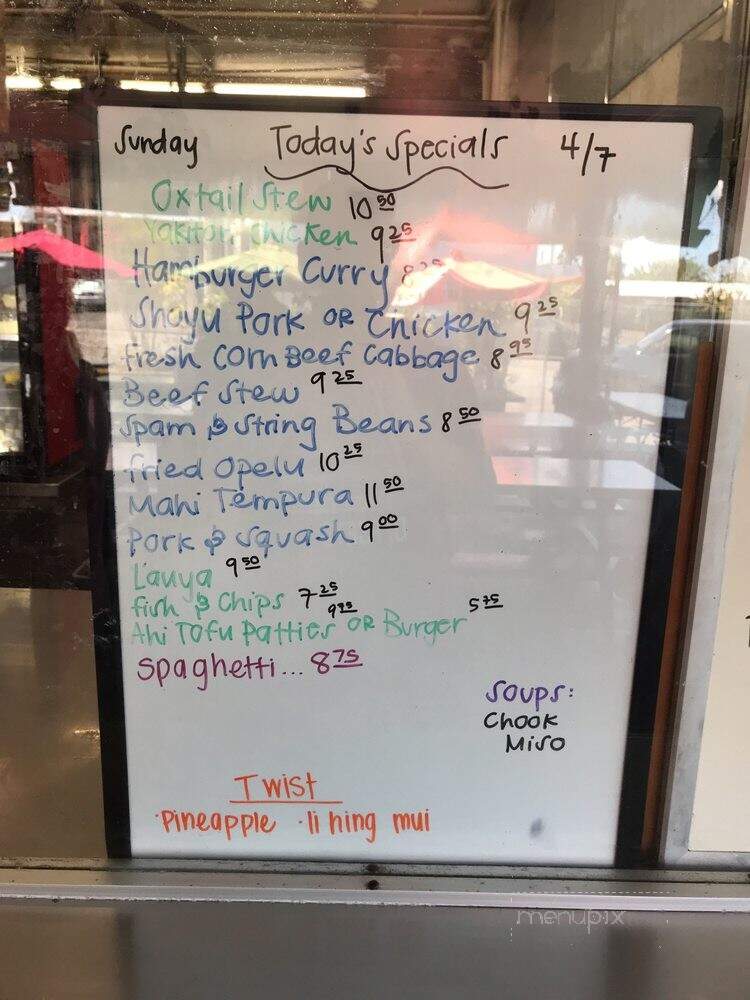 Sunday Today's Specials 4/7
Oxtail Stew 10 50
Yakitori Chicken 9 25
Hamburger Curry 8 25
Shoyu Pork OR Chicken 9 25
Fresh Corn Beef Cabbage 8 95
Beef Stew 9 25
Spam & String Beans 8 50
Fried Opelu 10 25
Mahi Tempura 11 50
Pork & Squash 9 00
Lauya 9 50
Fish & Chips 7 25
Ahi Tofu Patties OR Burger 5 75
Spaghetti... 8 75
Soups:
Chook
Miso
Twist
·Pineapple ·li hing mui
menupix